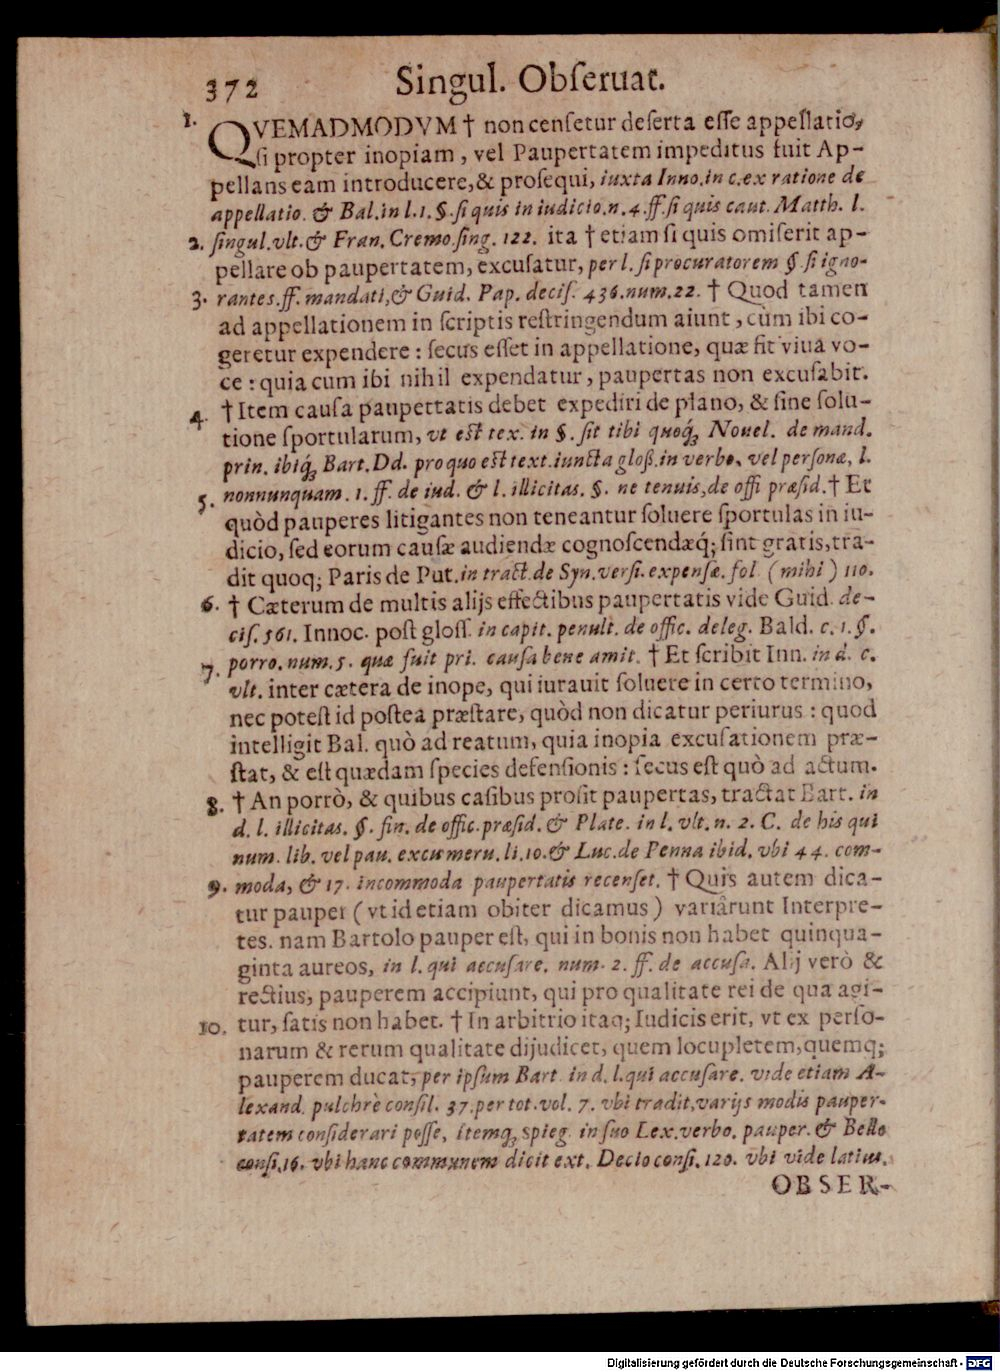 372 Singul. Obſeruat.
1. QVEMADMODVM † non cenſetur deſerta eſſe appellatio,
ſi propter inopiam, vel Paupertatem impeditus fuit Ap-
pellans eam introducere, & proſequi, iuxta Inno. in c. ex ratione de
appellatio. & Bal. in l. 1. §. ſi quis in iudicio. n. 4. ff. ſi quis caut. Matth. l.
2. ſingul. vlt. & Fran. Cremo. ſing. 122. ita † etiam ſi quis omiſerit ap-
pellare ob paupertatem, excuſatur, per l. ſi procuratorem §. ſi igno-
3. rantes. ff. mandati, & Guid. Pap. deciſ. 436. num. 22. † Quod tamen
ad appellationem in ſcriptis reſtringendum aiunt, cùm ibi co-
geretur expendere : ſecus eſſet in appellatione, quæ fit viua vo-
ce : quia cum ibi nihil expendatur, paupertas non excuſabit.
4. † Item cauſa paupertatis debet expediri de plano, & ſine ſolu-
tione ſportularum, vt eſt tex. in §. ſit tibi quoq́ꝫ Nouel. de mand.
prin. ibiq́ꝫ Bart. Dd. pro quo eſt text. iuncta gloß. in verbo, vel perſonæ, l.
nonnunquam. 1. ff. de iud. & l. illicitas. §. ne tenuis, de offi præſid. † Et
5. quòd pauperes litigantes non teneantur ſoluere ſportulas in iu-
dicio, ſed eorum cauſæ audiendæ cognoſcendæq́; ſint gratis, tra-
dit quoq; Paris de Put. in tract. de Syn. verſi. expenſæ. fol (mihi) 110.
6. † Cæterum de multis alijs effectibus paupertatis vide Guid. de-
ciſ. 561. Innoc. poſt gloſſ. in capit. penult. de offic. deleg. Bald. c. 1. §.
porro. num. 5. quæ fuit pri. cauſa bene amit. † Et ſcribit Inn. in d. c.
7. vlt. inter cætera de inope, qui iurauit ſoluere in certo termino,
nec poteſt id poſtea præſtare, quòd non dicatur periurus : quod
intelligit Bal. quò ad reatum, quia inopia excuſationem præ-
ſtat, & eſt quædam ſpecies defenſionis : ſecus eſt quò ad actum.
8. † An porrò, & quibus caſibus proſit paupertas, tractat Bart. in
d. l. illicitas. §. fin. de offic. præſid. & Plate. in l. vlt. n. 2. C. de his qui
num. lib. vel pau. excu meru. li. 10. & Luc. de Penna ibid. vbi 44. com-
9. moda, & 17. incommoda paupertatis recenſet. † Quis autem dica-
tur pauper (vt id etiam obiter dicamus) variârunt Interpre-
tes. nam Bartolo pauper eſt, qui in bonis non habet quinqua-
ginta aureos, in l. qui accuſare. num. 2. ff. de accuſa. Alij verò &
rectius, pauperem accipiunt, qui pro qualitate rei de qua agi-
10. tur, ſatis non habet. † In arbitrio itaq; Iudicis erit, vt ex perſo-
narum & rerum qualitate dijudicet, quem locupletem, quemq;
pauperem ducat, per ipſum Bart. in d. l. qui accuſare. vide etiam A-
lexand. pulchrè conſil. 37. per tot. vol. 7. vbi tradit, varijs modis pauper-
tatem conſiderari poſſe, itemq́ꝫ ſpieg. in ſuo Lex. verbo. pauper. & Bello
conſi. 16. vbi hanc communem dicit ext. Decio conſi. 120. vbi vide latius.
OBSER-
Digitalisierung gefördert durch die Deutsche Forschungsgemeinschaft - DFG